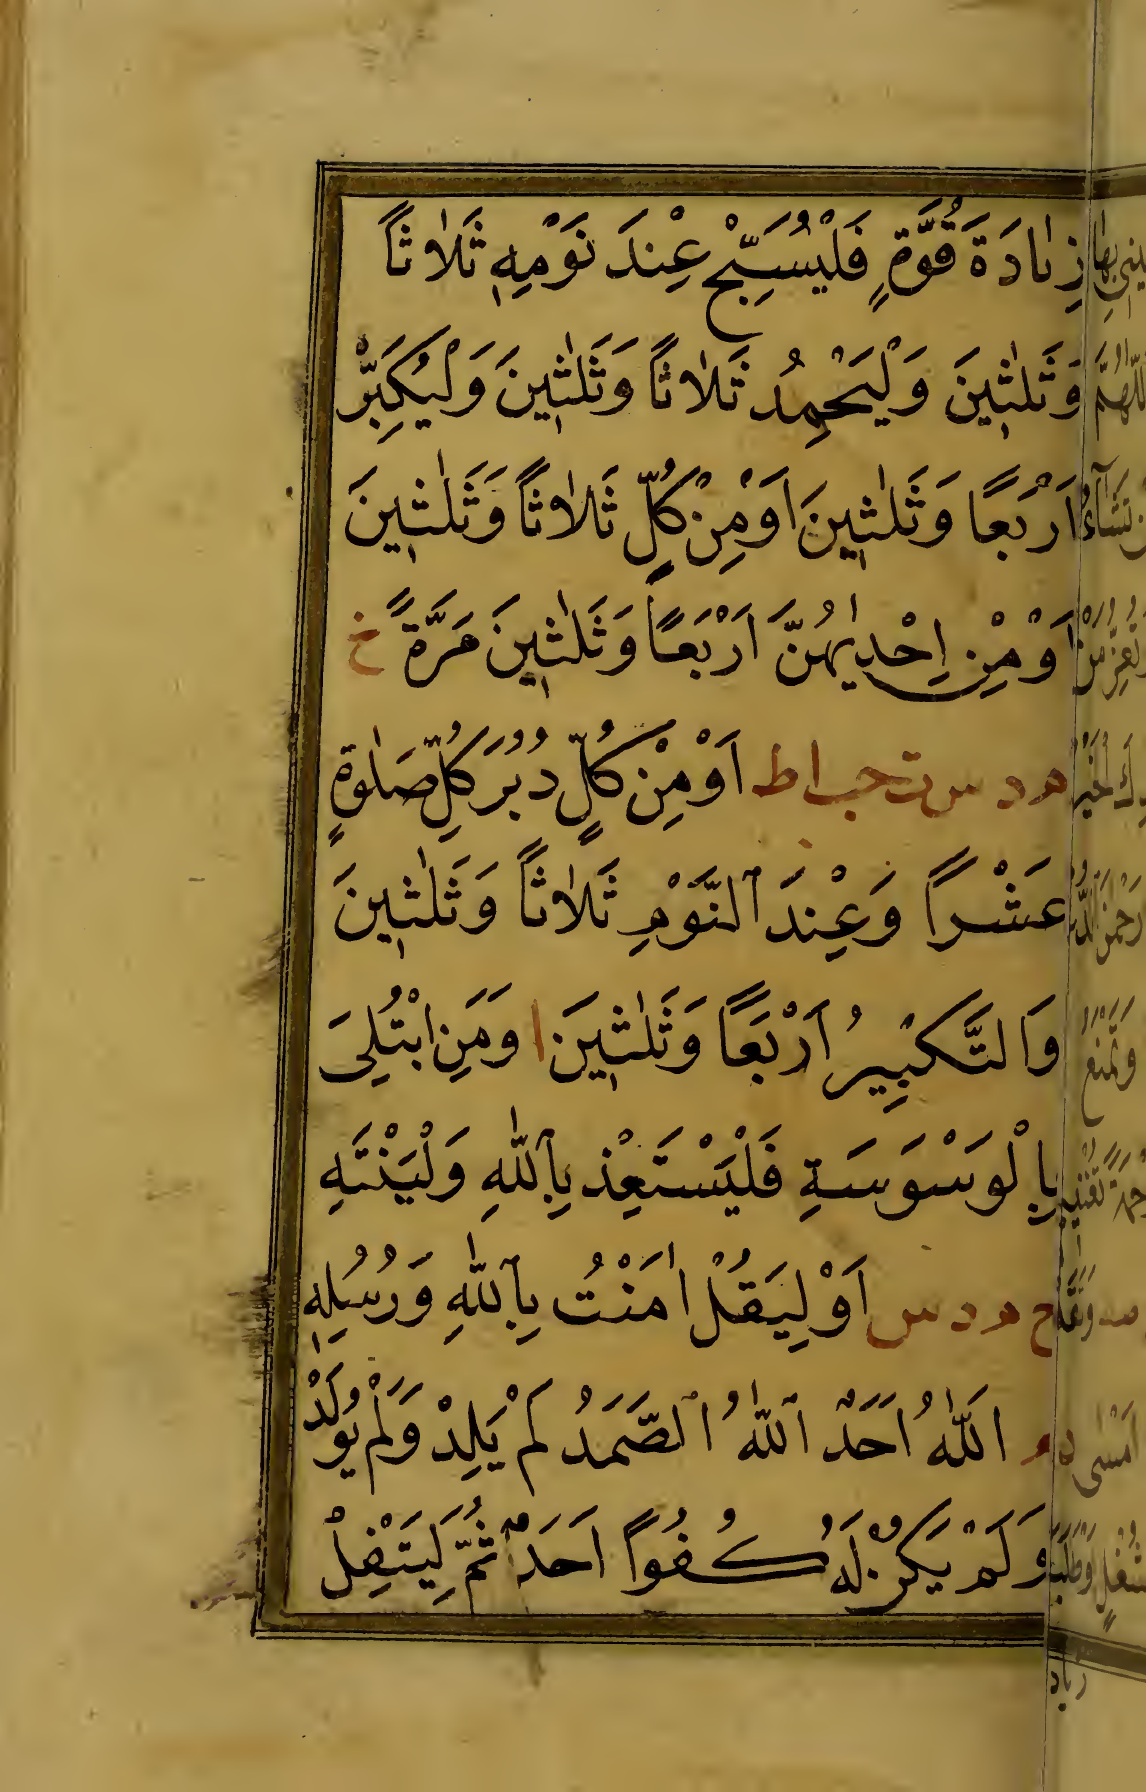 زِيَادَةَ قُوَّةٍ فَلْيُسَبِّحْ عِنْدَ نَوْمِهِ ثَلَاثًا
وَثَلٰثِينَ وَلْيَحْمِدُ ثَلَاثًا وَثَلٰثِينَ وَلْيُكَبِّرْ
اَرْبَعًا وَثَلٰثِينَ اَوْ مِنْ كُلٍّ ثَلَاثًا وَثَلٰثِينَ
اَوْ مِنْ اِحْدٰيهُنَّ اَرْبَعًا وَثَلٰثِينَ مَرَّةً خ
م د س ت حب ا ط اَوْ مِنْ كُلٍّ دُبُرَ كُلِّ صَلٰوةٍ
عَشْرًا وَعِنْدَ النَّوْمِ ثَلَاثًا وَثَلٰثِينَ
وَالتَّكْبِيرُ اَرْبَعًا وَثَلٰثِينَ ا وَمَنِ ابْتُلِىَ
بِالْوَسْوَسَةِ فَلْيَسْتَعِذْ بِاللّٰهِ وَلْيَنْتَهِ
خ م د س اَوْ لِيَقُلْ اٰمَنْتُ بِاللّٰهِ وَرُسُلِهِ
م اَللّٰهُ اَحَدٌ اَللّٰهُ الصَّمَدُ لَمْ يَلِدْ وَلَمْ يُولَدْ
وَلَمْ يَكُنْ لَهُ كُفُوًا اَحَدٌ ثُمَّ لِيَتْفِلْ